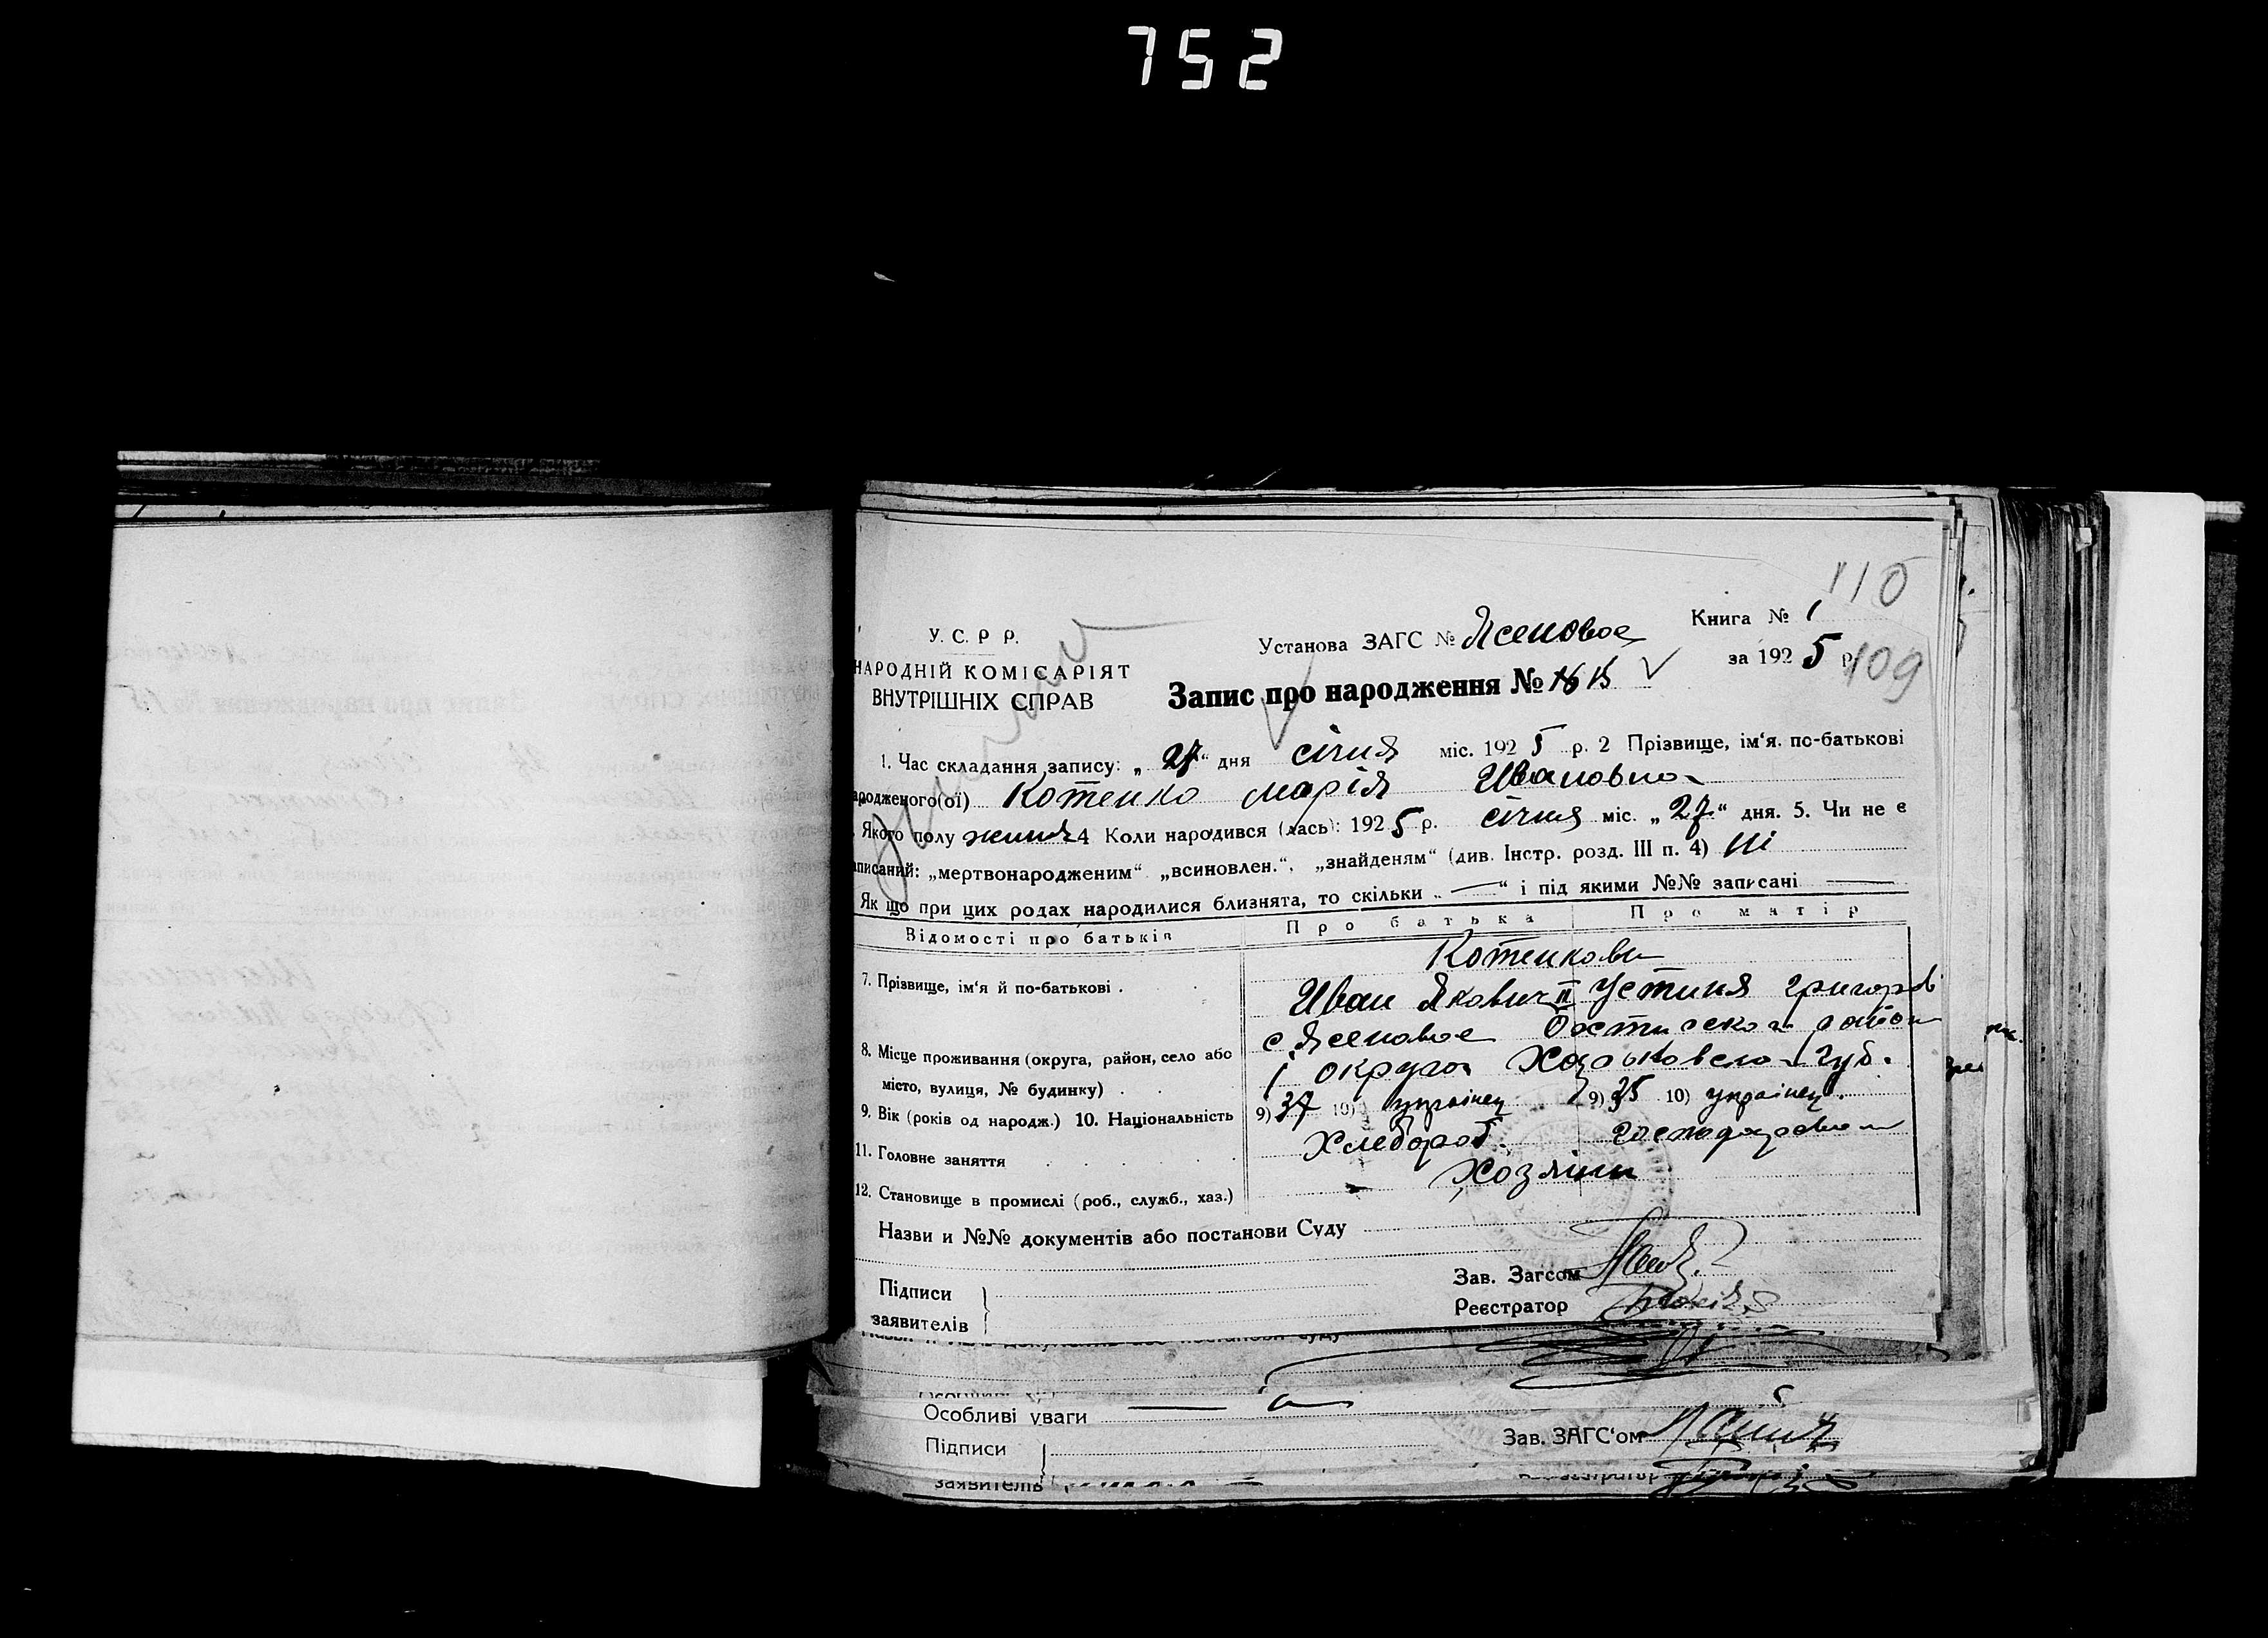 752
110
У. С. Р Р.
Установа ЗАГС № Ясеновое
Книга № 1
НАРОДНІЙ КОМІСАРІЯТ
за 1925 р.
109
ВНУТРІШНІХ СПРАВ
Запис про народження № 15
1. Час складання запису: „27“ дня січня міс. 1925 р. 2 Прізвище, ім‘я. по-батькові
ародженого(ої) Котенко Марія Ивановна
Якого полу 4 Коли народився (лась): 1925 р. січня міс. „27“ дня. 5. Чи не є
аписаний: „мертвонародженим“ „всиновлен.“, „знайденям“ (див. Інстр. розд. III п. 4) ні
Як що при цих родах народилися близнята, то скільки „—“ і під якими №№ записані —
Відомості про батьків Про батька Про матір
Котенкови
7. Прізвище, ім‘я й по-батькові . Иван Якович II Устиня Григоров
с. Ясеновое района
8. Місце проживання (округа, район, село або
місто, вулиця, № будинку) . . округа Харьковско губ.
9. Вік (років од народж.) 10. Національність 9) 37 10) українец 9) 35 10) українец.
11. Головне заняття . . . . Хлебороб.
12. Становище в промислі (роб., служб., хаз.) Хозяїни
Назви и №№ документів або постанови Суду
Зав. Загсом
Підписи
Реєстратор
заявителів
Особливі уваги —
Підписи
Зав. ЗАГС‘ом
заявителів